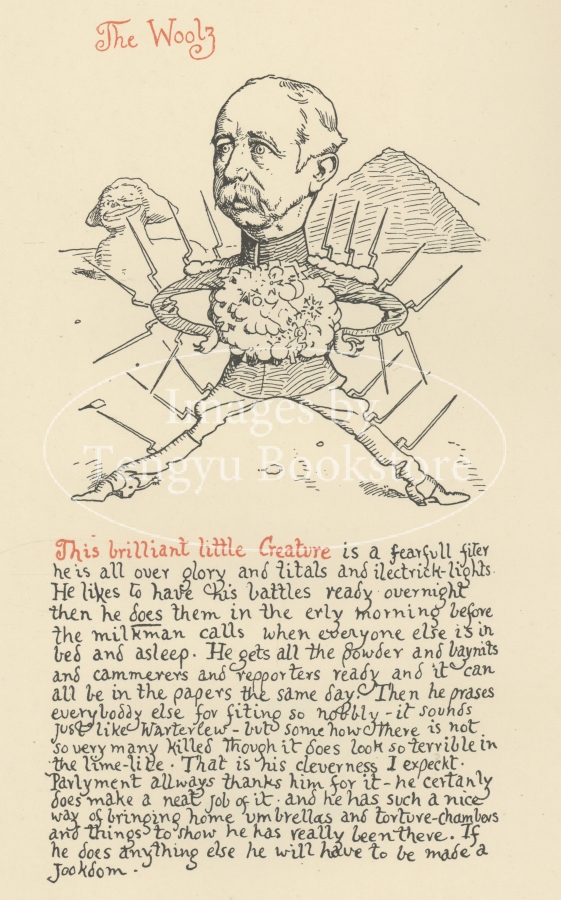 The Woolz
Images by
Tengyu Bookstore
This brilliant little Creature is a fearfull fiter
he is all over glory and titals and ilectrick-lights.
He likes to have his battles ready overnight
then he does them in the erly morning before
the milkman calls when everyone else is in
bed and asleep. He gets all the powder and baynits
and cammerers and repporters ready and it can
all be in the papers the same day. Then he prases
everyboddy else for fiting so nobbly - it sounds
just like Warterlew - but some how there is not
so very many killed though it does look so terrible in
the lime-lite. That is his cleverness I expeckt.
Parlyment allways thanks him for it - he certanly
does make a neat job of it. and he has such a nice
way of bringing home umbrellas and torture-chambers
and things to show he has really been there. If
he does anything else he will have to be made a
Jookdom.